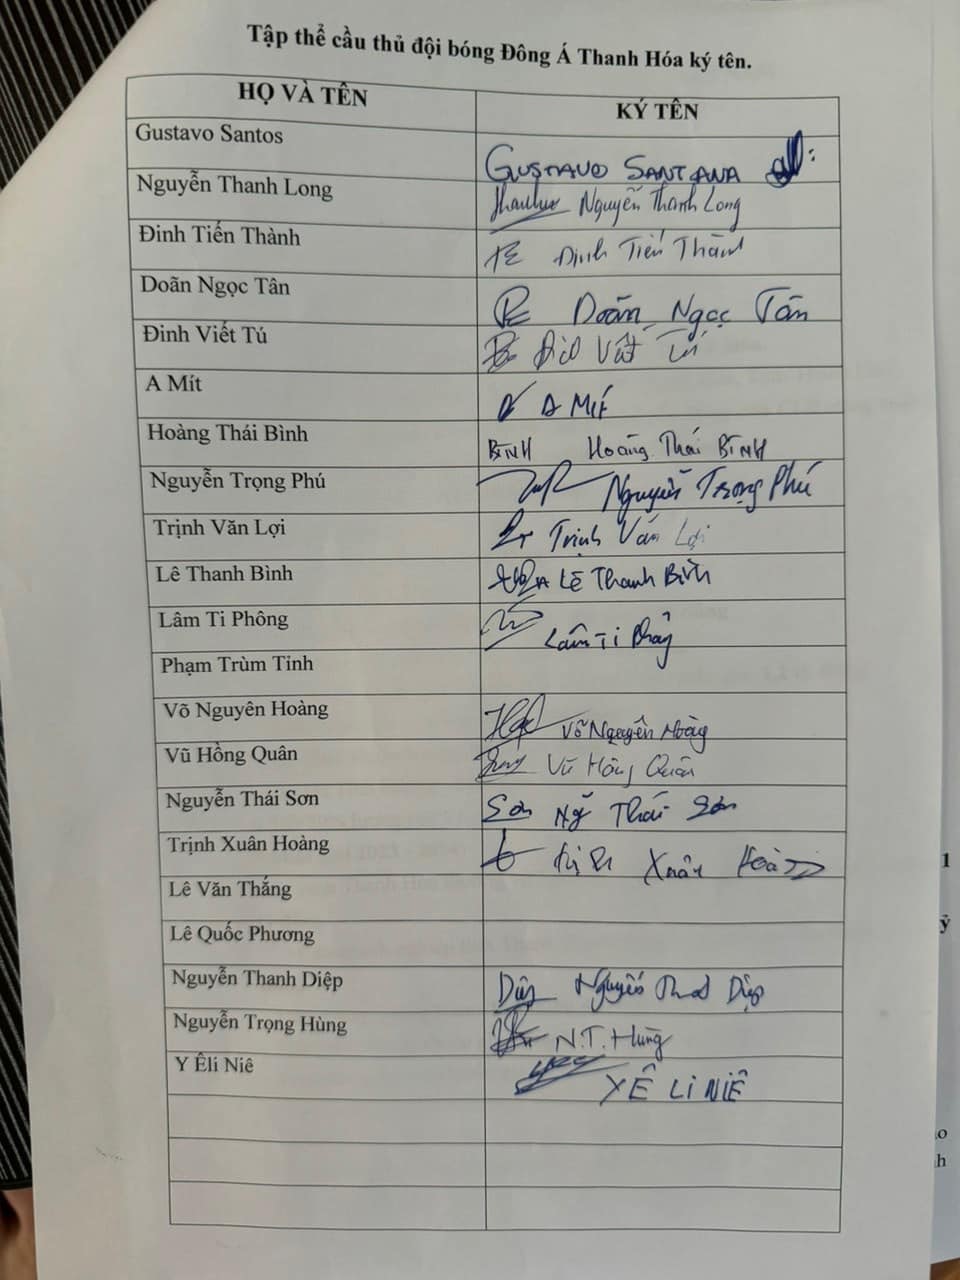 Tập thể cầu thủ đội bóng Đông Á Thanh Hóa ký tên.
HỌ VÀ TÊN KÝ TÊN
Gustavo Santos GUSTAVO SANTANA
Nguyễn Thanh Long Nguyễn Thanh Long
Đinh Tiến Thành Đinh Tiến Thành
Doãn Ngọc Tân Doãn Ngọc Tân
Đinh Viết Tú Tú
A Mít A MÍT
Hoàng Thái Bình BÌNH Hoàng Thái BÌNH
Nguyễn Trọng Phú Nguyễn Trọng Phú
Trịnh Văn Lợi Trịnh Văn Lợi
Lê Thanh Bình LÊ Thanh Bình
Lâm Ti Phông Lâm Ti Phông
Phạm Trùm Tỉnh
Võ Nguyên Hoàng Võ Nguyên Hoàng
Vũ Hồng Quân Vũ Hồng Quân
Nguyễn Thái Sơn Sơn Ng~ Thái Sơn
Trịnh Xuân Hoàng Xuân Hoàng
Lê Văn Thắng
Lê Quốc Phương
Nguyễn Thanh Diệp Diệp Nguyễn Thanh Diệp
Nguyễn Trọng Hùng N.T. Hùng
Y Êli Niê Y Ê LI NIÊ
1
ỷ